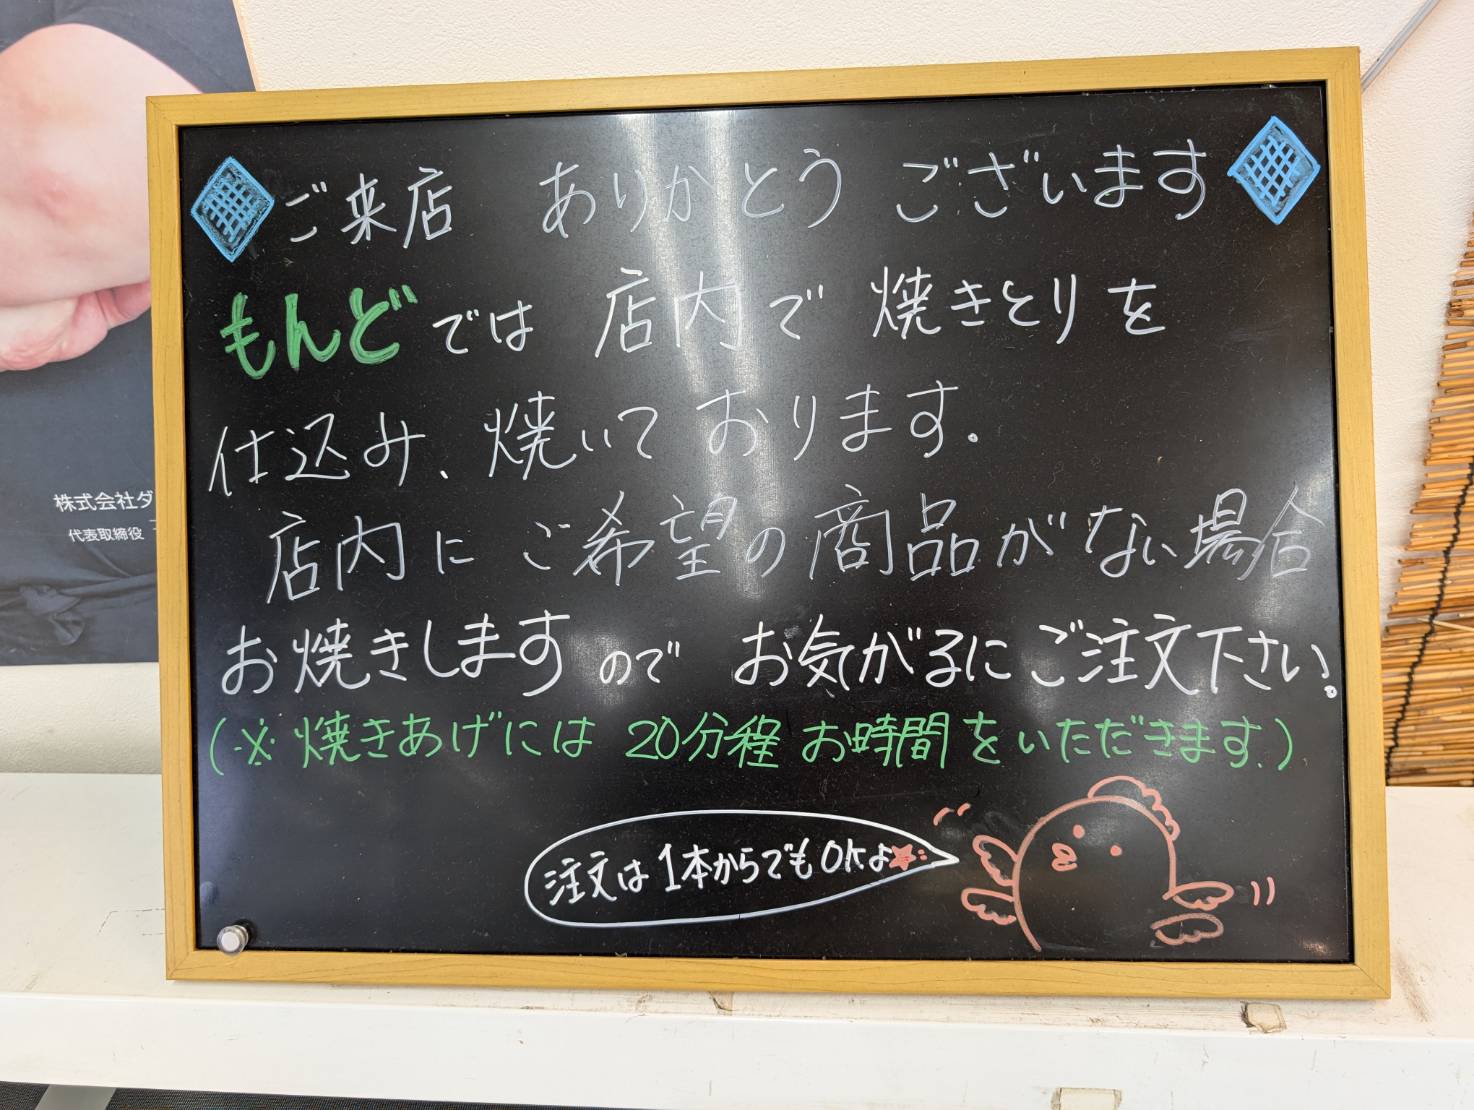 ご来店 ありがとう ございます
もんどでは 店内で 焼きとりを
仕込み、焼いて おります.
店内に ご希望の商品がない場合
お焼きします ので お気がるにご注文下さい。
(※焼きあげには 20分程 お時間をいただきます.)
注文は1本からでもOKよ
株式会社ダ
代表取締役